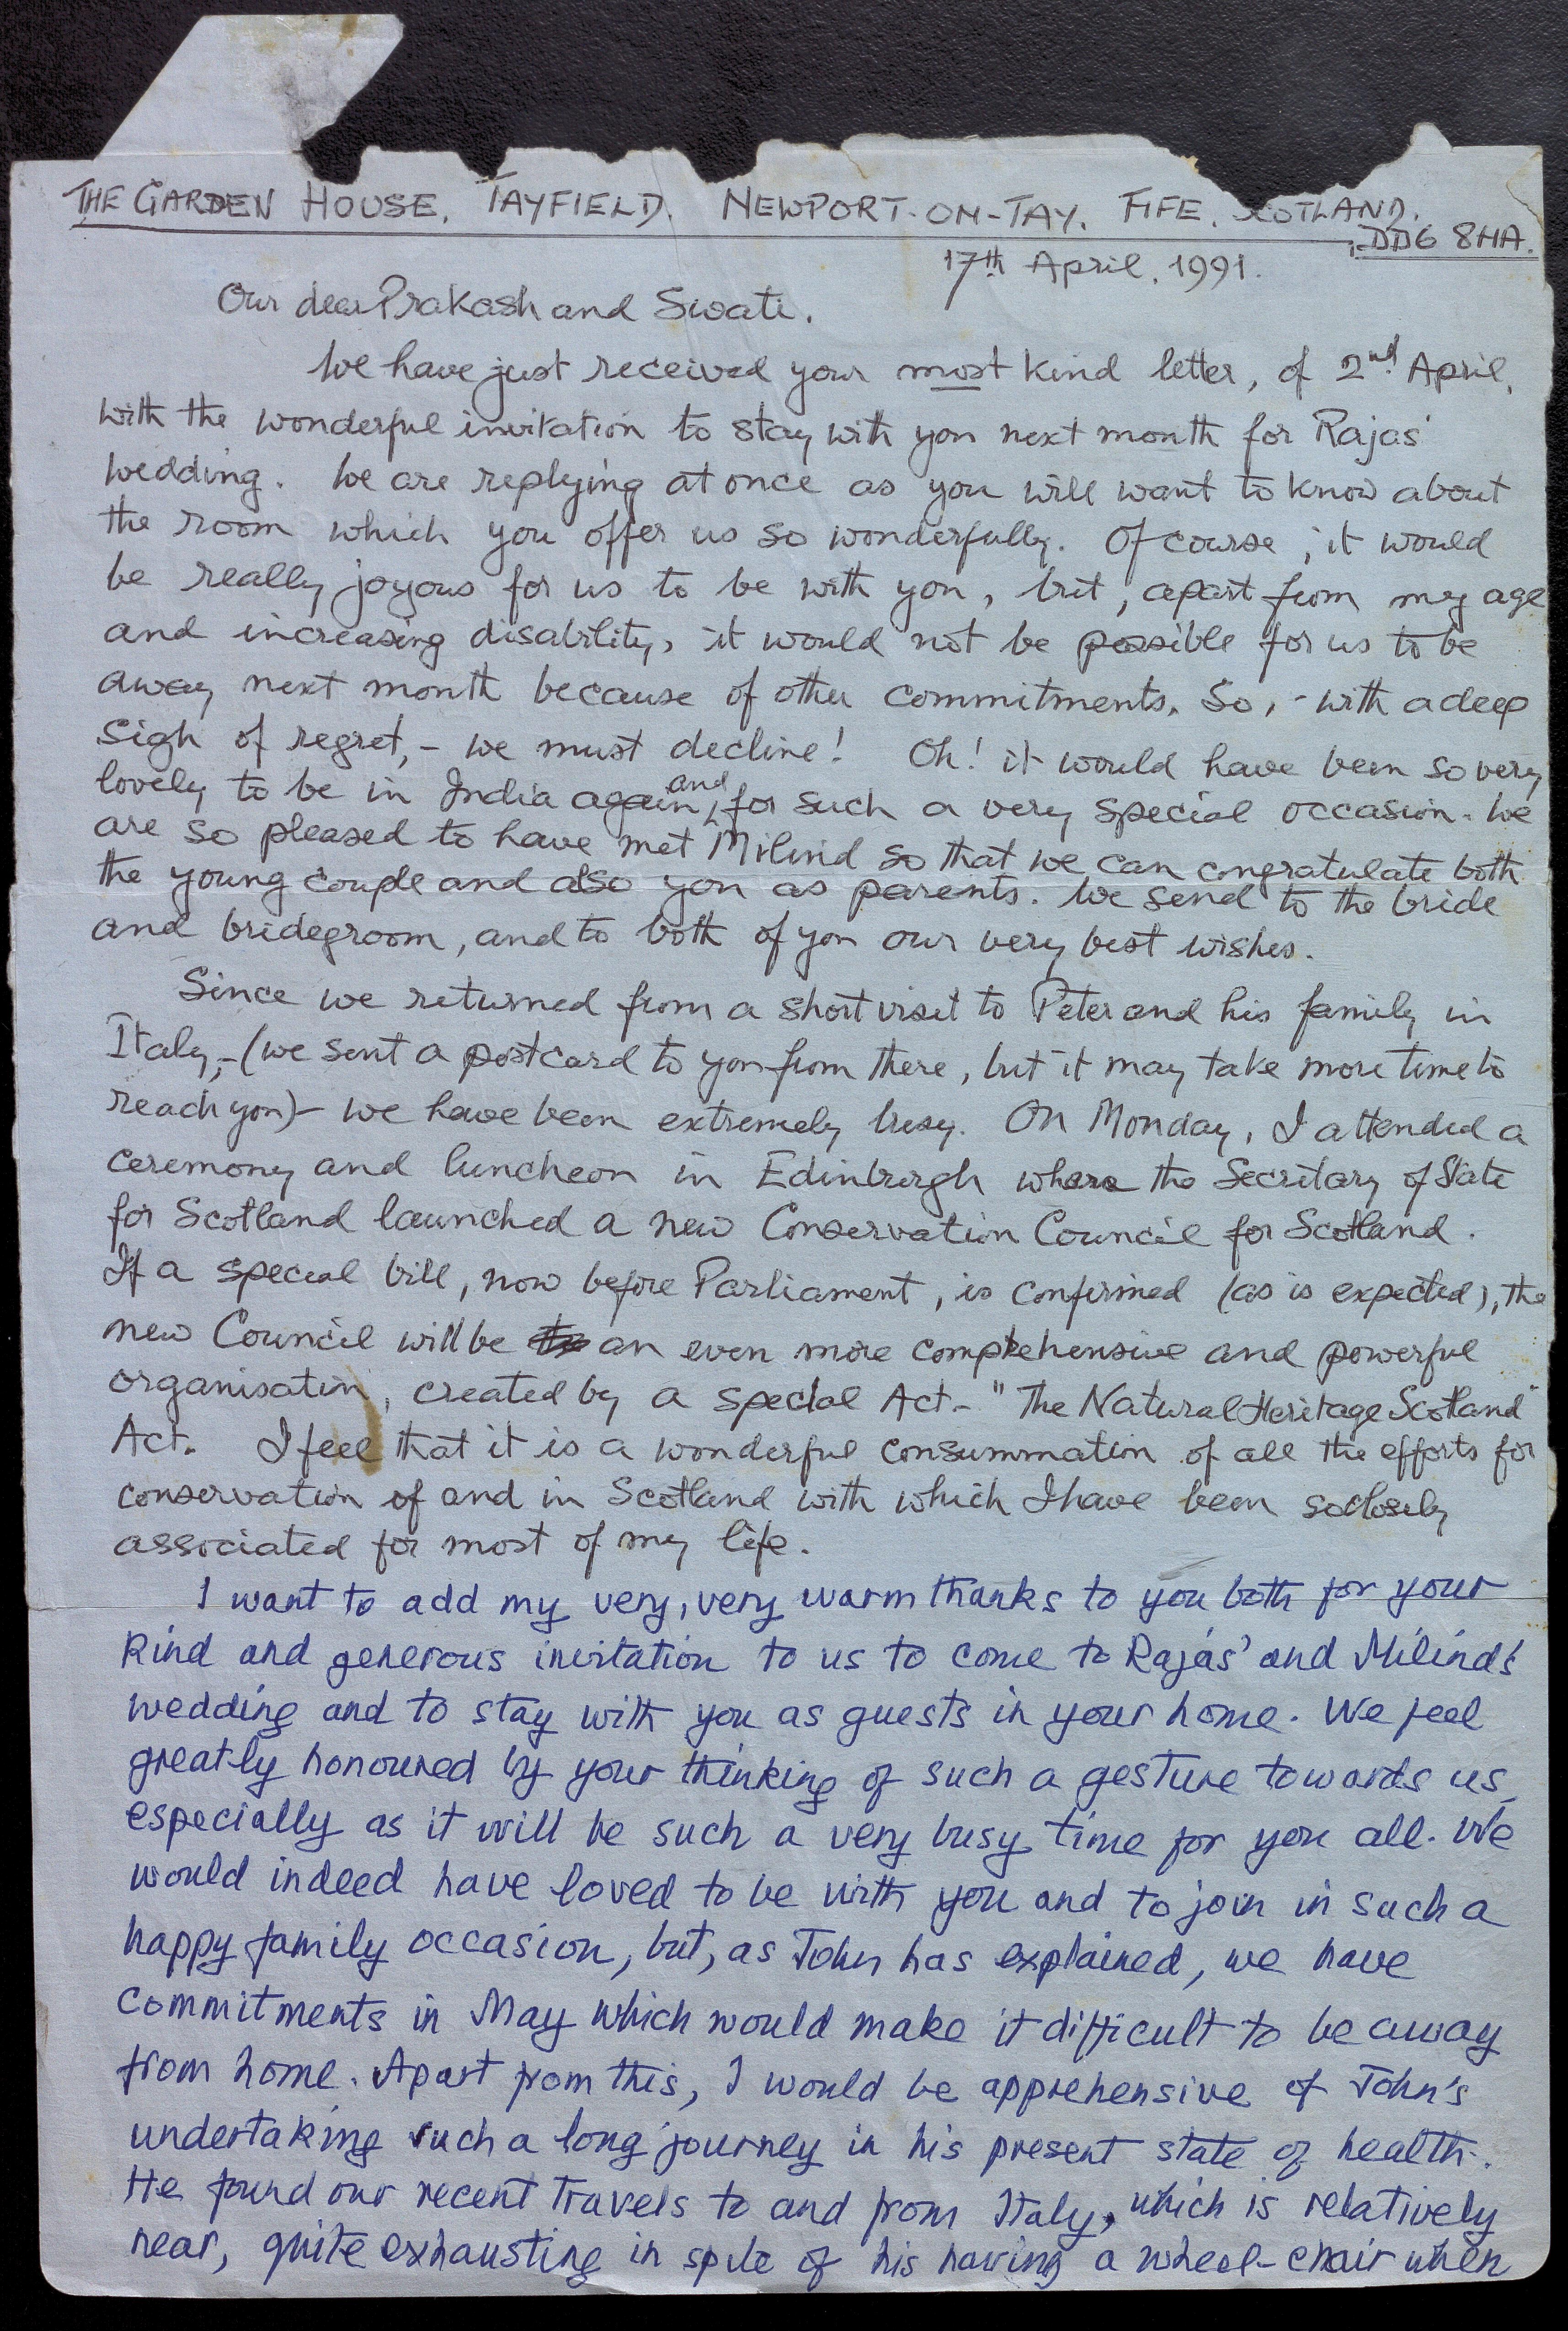 THE GARDEN HOUSE. TAYFIELD. NEWPORT-ON-TAY. FIFE. SCOTLAND.
DD6 8HA.
17th April. 1991.
Our dear Prakash and Swati.
We have just received your most kind letter, of 2nd April,
with the wonderful invitation to stay with you next month for Rajas'
wedding. We are replying at once as you will want to know about
the room which you offer us so wonderfully. Of course, it would
be really joyous for us to be with you, but, apart from my age
and increasing disability, it would not be possible for us to be
away next month because of other commitments. So, - with a deep
sigh of regret, - we must decline! Oh! it would have been so very
lovely to be in India again, and for such a very special occasion. We
are so pleased to have met Milind so that we can congratulate both
the young couple and also you as parents. We send to the bride
and bridegroom, and to both of you our very best wishes.
Since we returned from a short visit to Peter and his family in
Italy, - (we sent a postcard to you from there, but it may take more time to
reach you) - we have been extremely busy. On Monday, I attended a
ceremony and luncheon in Edinburgh where the Secretary of State
for Scotland launched a new Conservation Council for Scotland.
If a special bill, now before Parliament, is confirmed (as is expected), the
new Council will be an even more comprehensive and powerful
organisation, created by a special Act - "The Natural Heritage Scotland"
Act. I feel that it is a wonderful consummation of all the efforts for
conservation of and in Scotland with which I have been so closely
associated for most of my life.
I want to add my very, very warm thanks to you both for your
kind and generous invitation to us to come to Rajas' and Milind's
wedding and to stay with you as guests in your home. We feel
greatly honoured by your thinking of such a gesture towards us,
especially as it will be such a very busy time for you all. We
would indeed have loved to be with you and to join in such a
happy family occasion, but, as John has explained, we have
commitments in May which would make it difficult to be away
from home. Apart from this, I would be apprehensive of John's
undertaking such a long journey in his present state of health.
He found our recent travels to and from Italy, which is relatively
near, quite exhausting in spite of his having a wheel-chair when